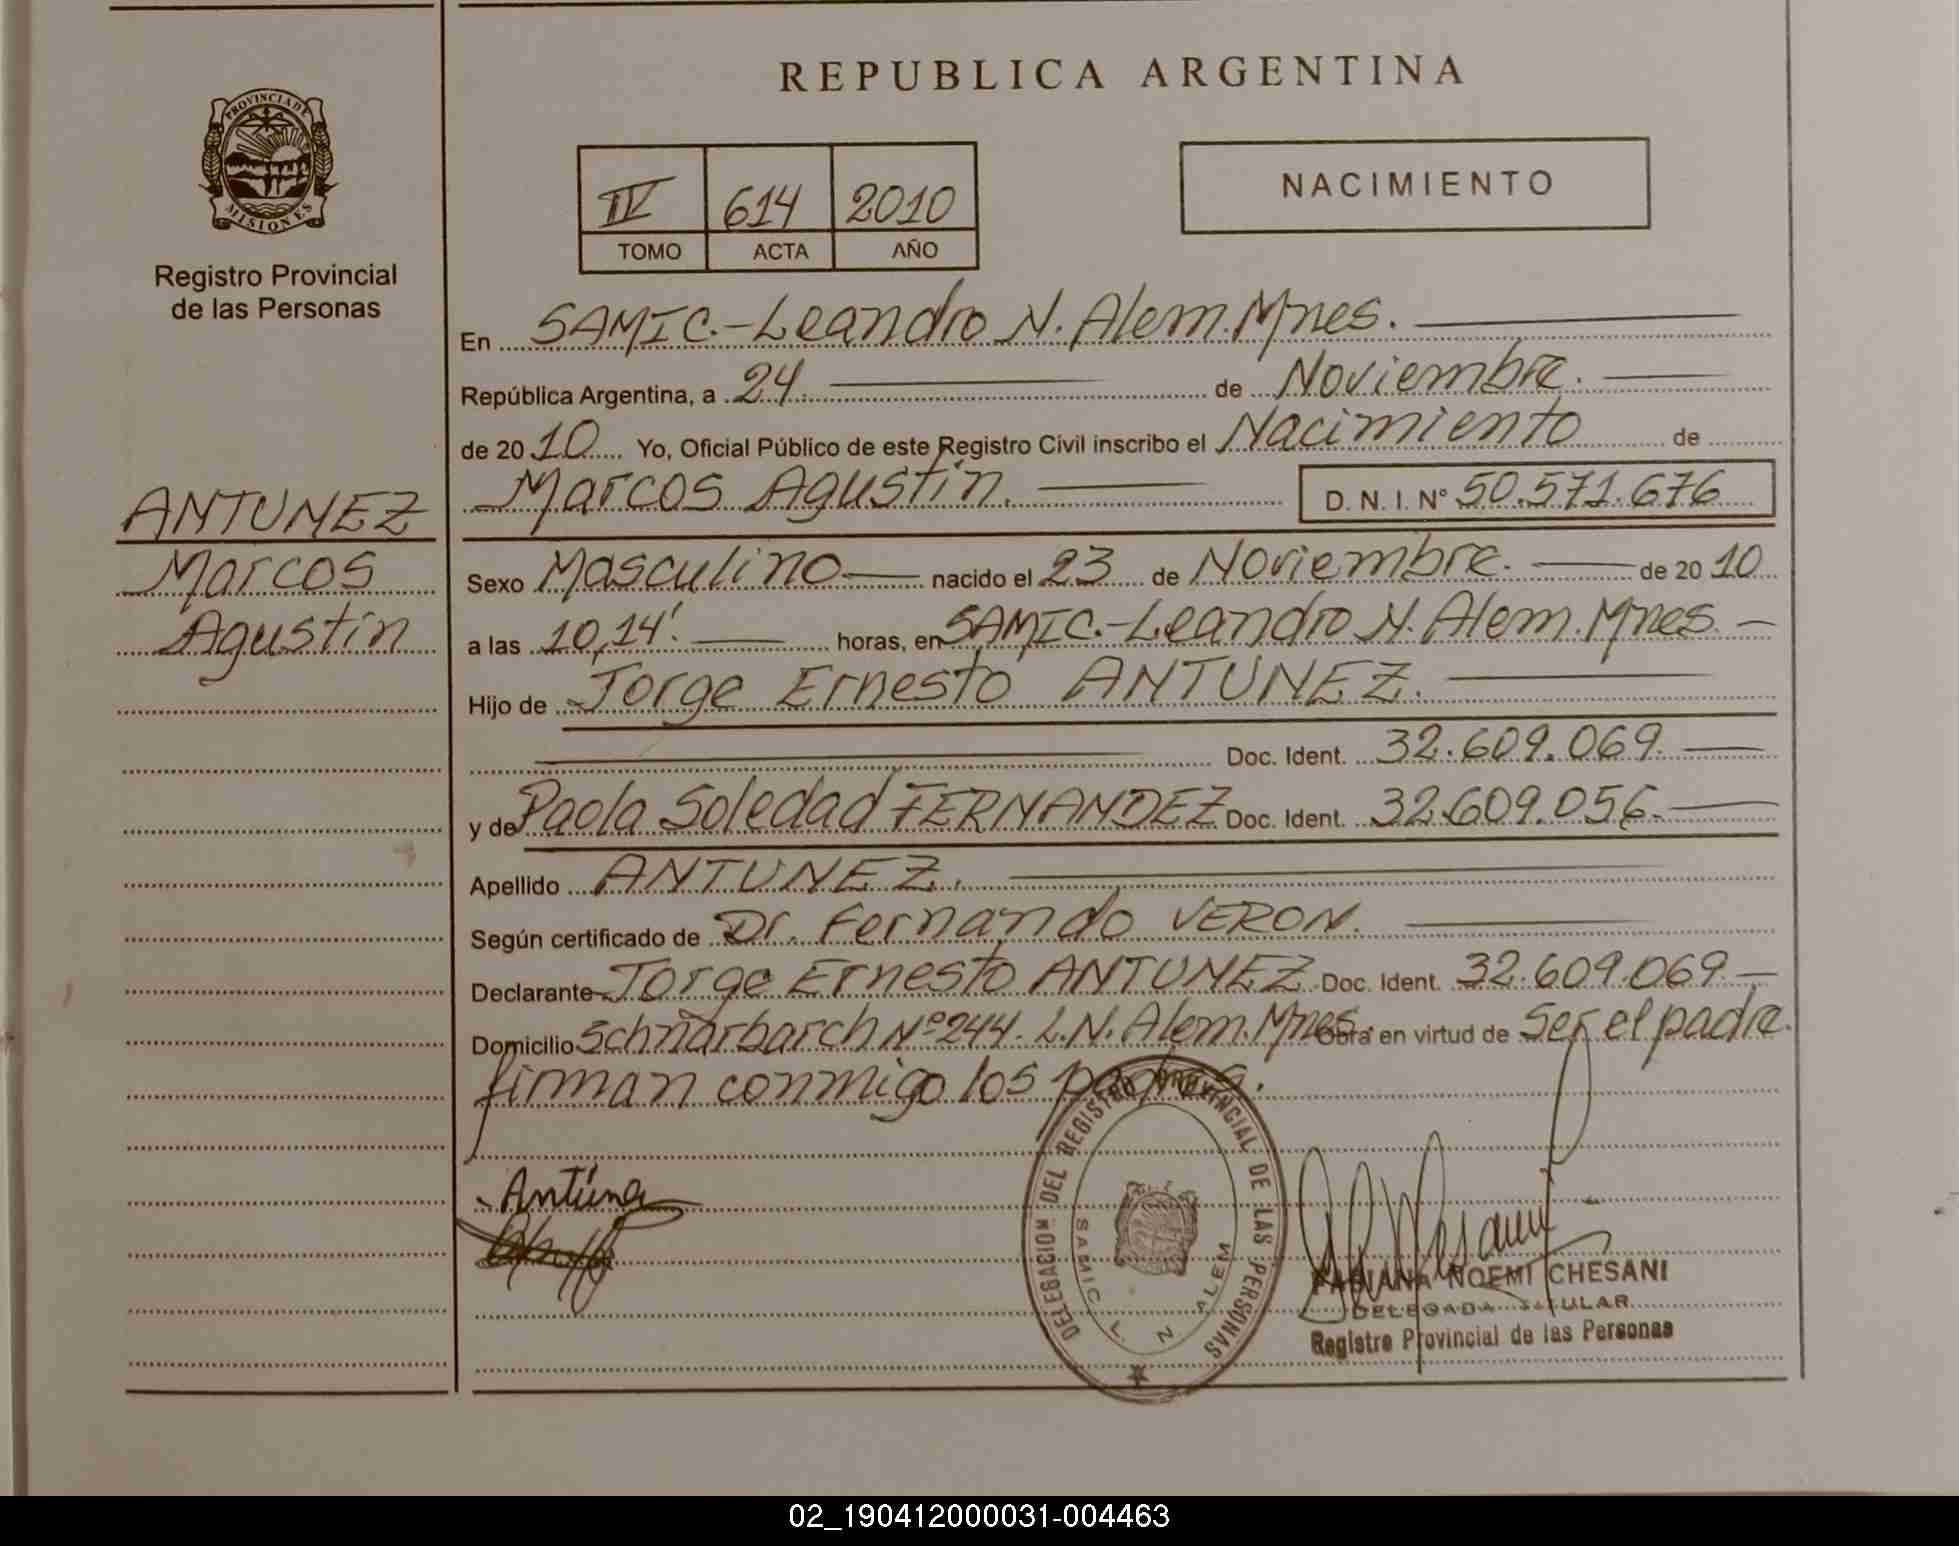 REPUBLICA ARGENTINA
PROVINCIA DE
MISIONES
Registro Provincial
de las Personas
IV 614 2010
TOMO ACTA AÑO
NACIMIENTO
En SAMIC.-Leandro N. Alem. Mnes.
República Argentina, a 24. de Noviembre.
de 2010 Yo, Oficial Público de este Registro Civil inscribo el Nacimiento de
Marcos Agustín. D. N. I. N° 50.571.676
ANTUNEZ
Marcos
Agustín
Sexo Masculino nacido el 23 de Noviembre. de 2010
a las 10,14'. horas, en SAMIC.-Leandro N. Alem. Mnes.
Hijo de Jorge Ernesto ANTUNEZ.
Doc. Ident. 32.609.069.
y de Paola Soledad FERNANDEZ Doc. Ident. 32.609.056.
Apellido ANTUNEZ.
Según certificado de Dr. Fernando VERON.
Declarante Jorge Ernesto ANTUNEZ Doc. Ident. 32.609.069.
Domicilio Schnarbarch Nº 244. L.N. Alem. Mnes. Obra en virtud de Ser el padre.
firman conmigo los padres.
DELEGACION DEL REGISTRO PROVINCIAL DE LAS PERSONAS
SAMIC L. N. ALEM
FABIANA NOEMI CHESANI
DELEGADA TITULAR
Registro Provincial de las Personas
02_190412000031-004463